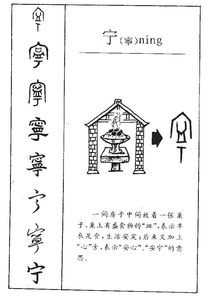 宁(寧)níng
寧
寧
寧
宁
一间房子中间放着一张桌
子,桌上有盛食物的“皿”,表示丰
衣足食,生活安定;后来又加上
“心”旁,表示“安心”、“安宁”的意
思。